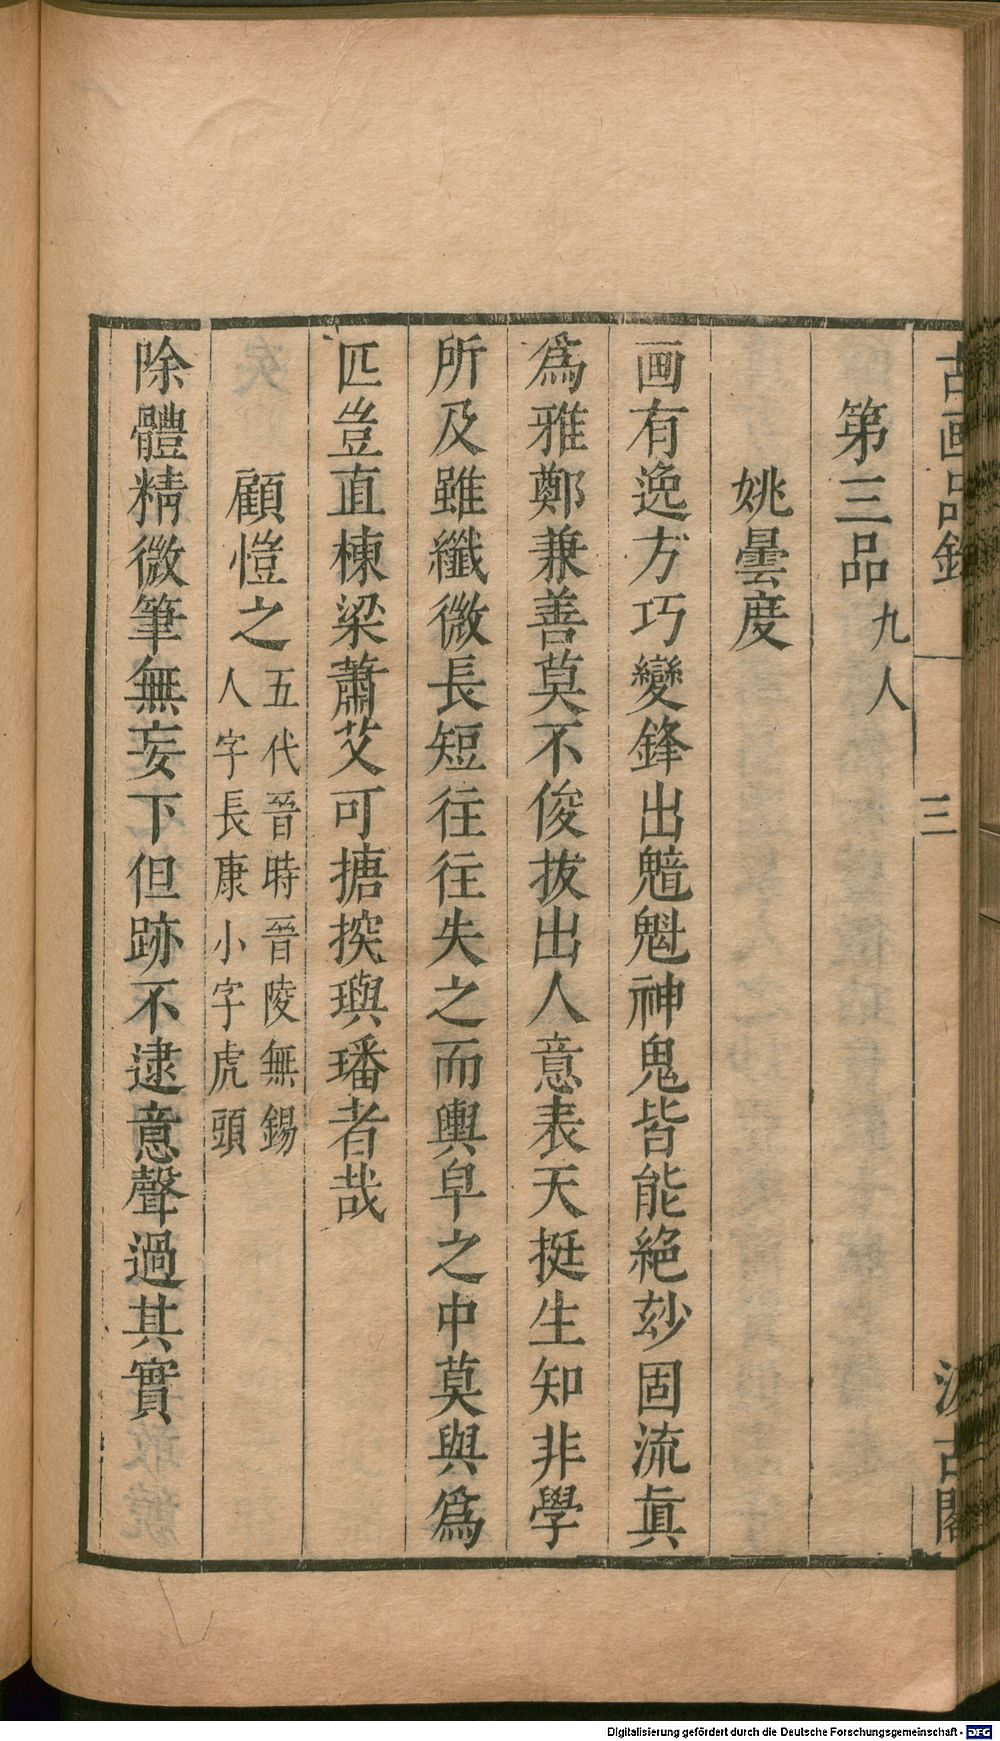 古画品錄 三 汲古閣
第三品九人
姚曇度
画有逸方巧變鋒出䰧魁神鬼皆能絶玅固流眞
爲雅鄭兼善莫不俊拔出人意表天挺生知非學
所及雖纖微長短往往失之而輿皁之中莫與爲
匹豈直棟梁蕭艾可搪揬璵璠者哉
顧愷之五代晉時晉陵無錫人字長康小字虎頭
除體精微筆無妄下但跡不逮意聲過其實
Digitalisierung gefördert durch die Deutsche Forschungsgemeinschaft - DFG